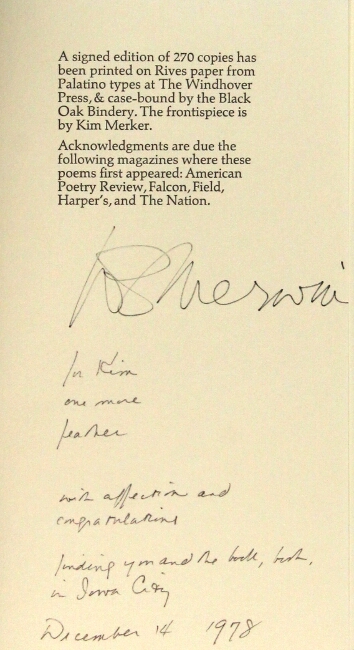 A signed edition of 270 copies has
been printed on Rives paper from
Palatino types at The Windhover
Press, & case-bound by the Black
Oak Bindery. The frontispiece is
by Kim Merker.
Acknowledgments are due the
following magazines where these
poems first appeared: American
Poetry Review, Falcon, Field,
Harper's, and The Nation.
WS Merwin
for Kim
one more
feather
with affection and
congratulations
finding you and the book, both,
in Iowa City
December 14 1978